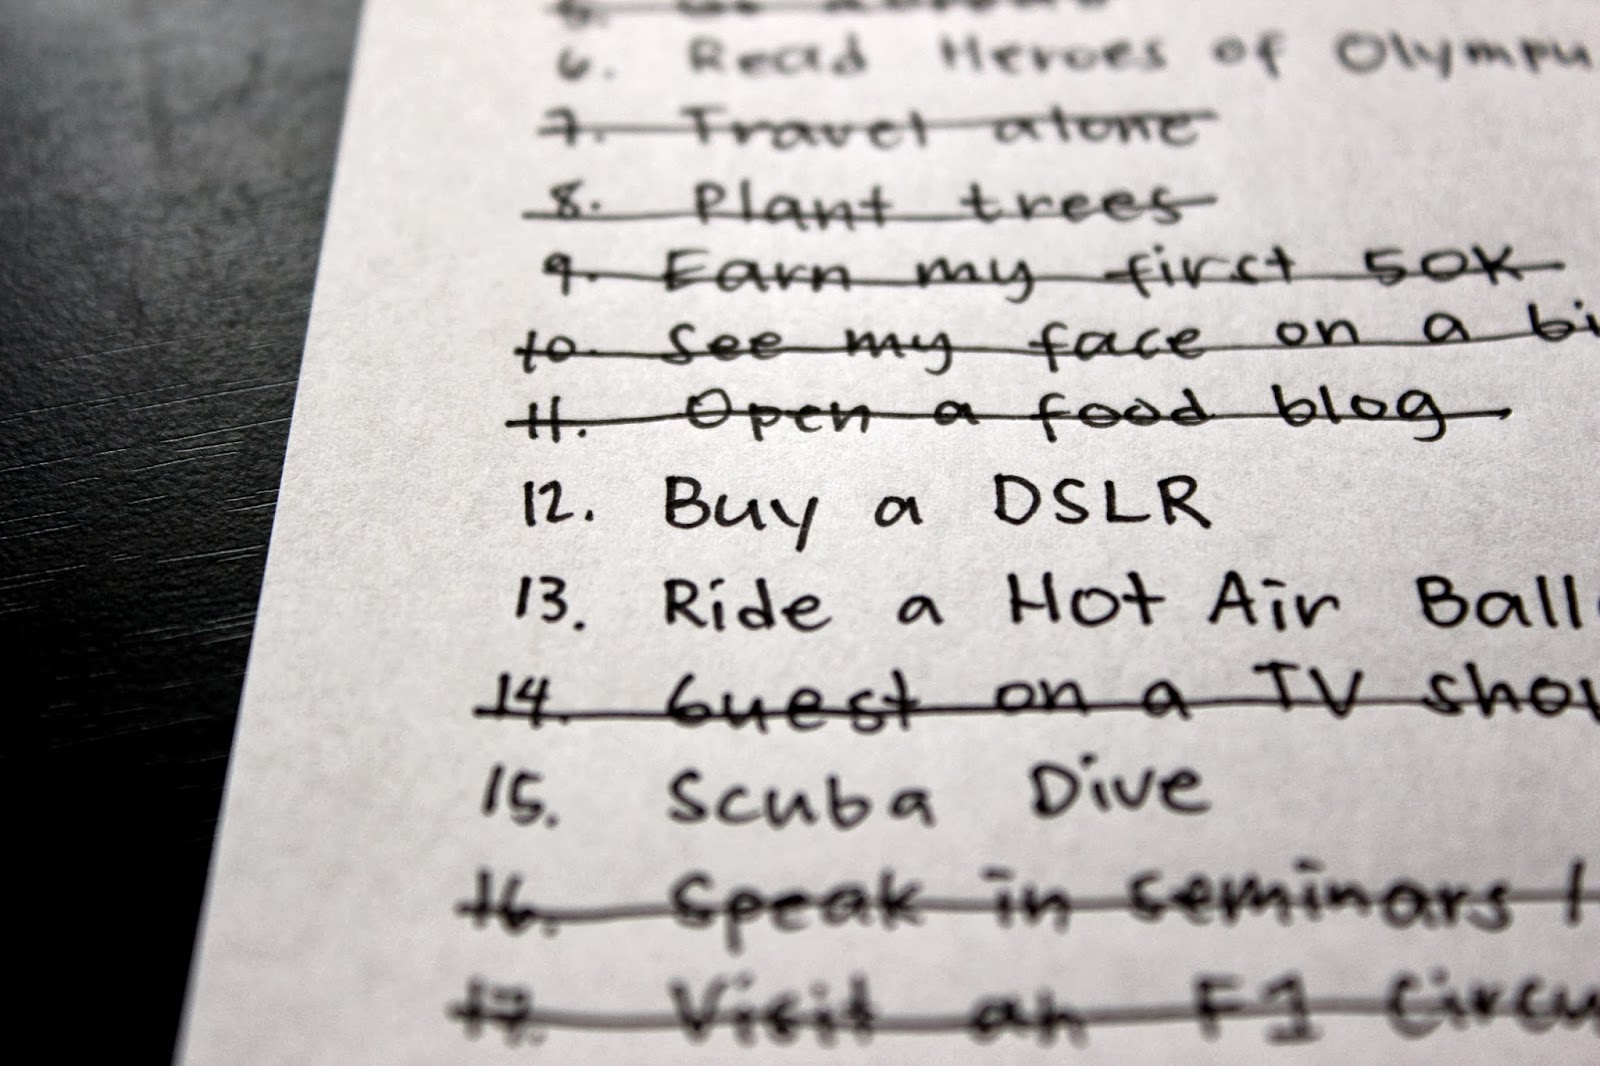 6. Read Heroes of Olympu
7. Travel alone
8. Plant trees
9. Earn my first 50K
10. See my face on a bi
11. Open a food blog
12. Buy a DSLR
13. Ride a Hot Air Ball
14. Guest on a TV show
15. Scuba Dive
16. Speak in seminars /
17. Visit an F1 Circu